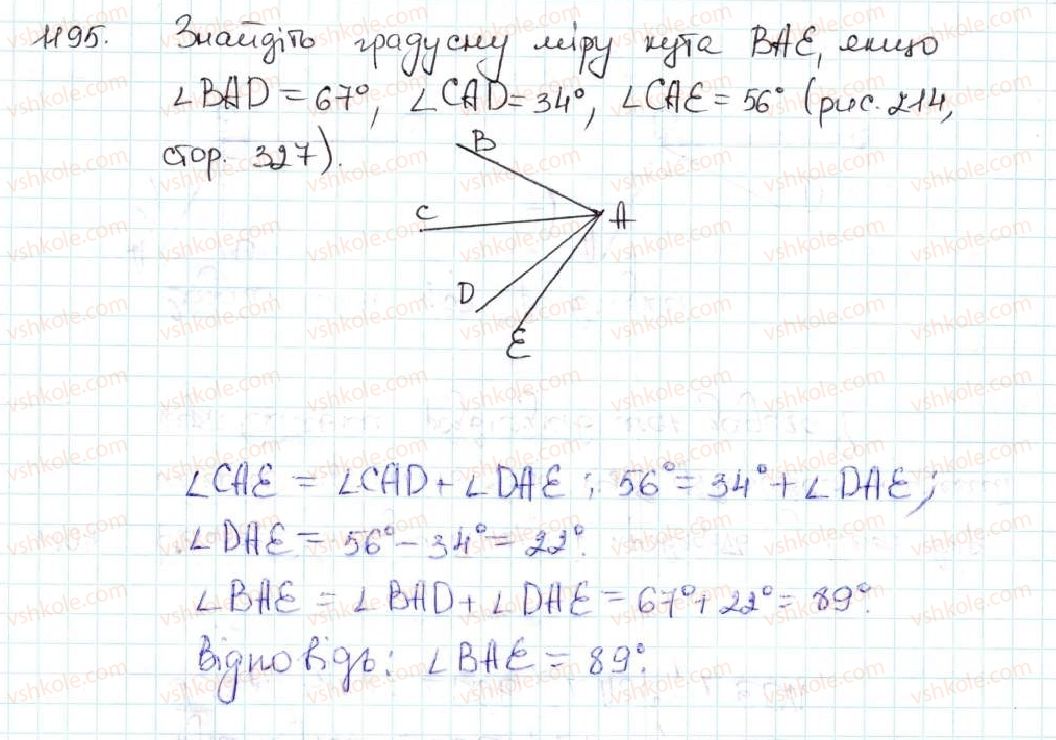 1195. Знайдіть градусну міру кута BAE, якщо
∠BAD = 67°, ∠CAD = 34°, ∠CAE = 56° (рис. 214,
стор. 327).
B
C
A
D
E
∠CAE = ∠CAD + ∠DAE ; 56° = 34° + ∠DAE ;
∠DAE = 56° – 34° = 22°.
∠BAE = ∠BAD + ∠DAE = 67° + 22° = 89°.
Відповідь: ∠BAE = 89°.
vshkole.com